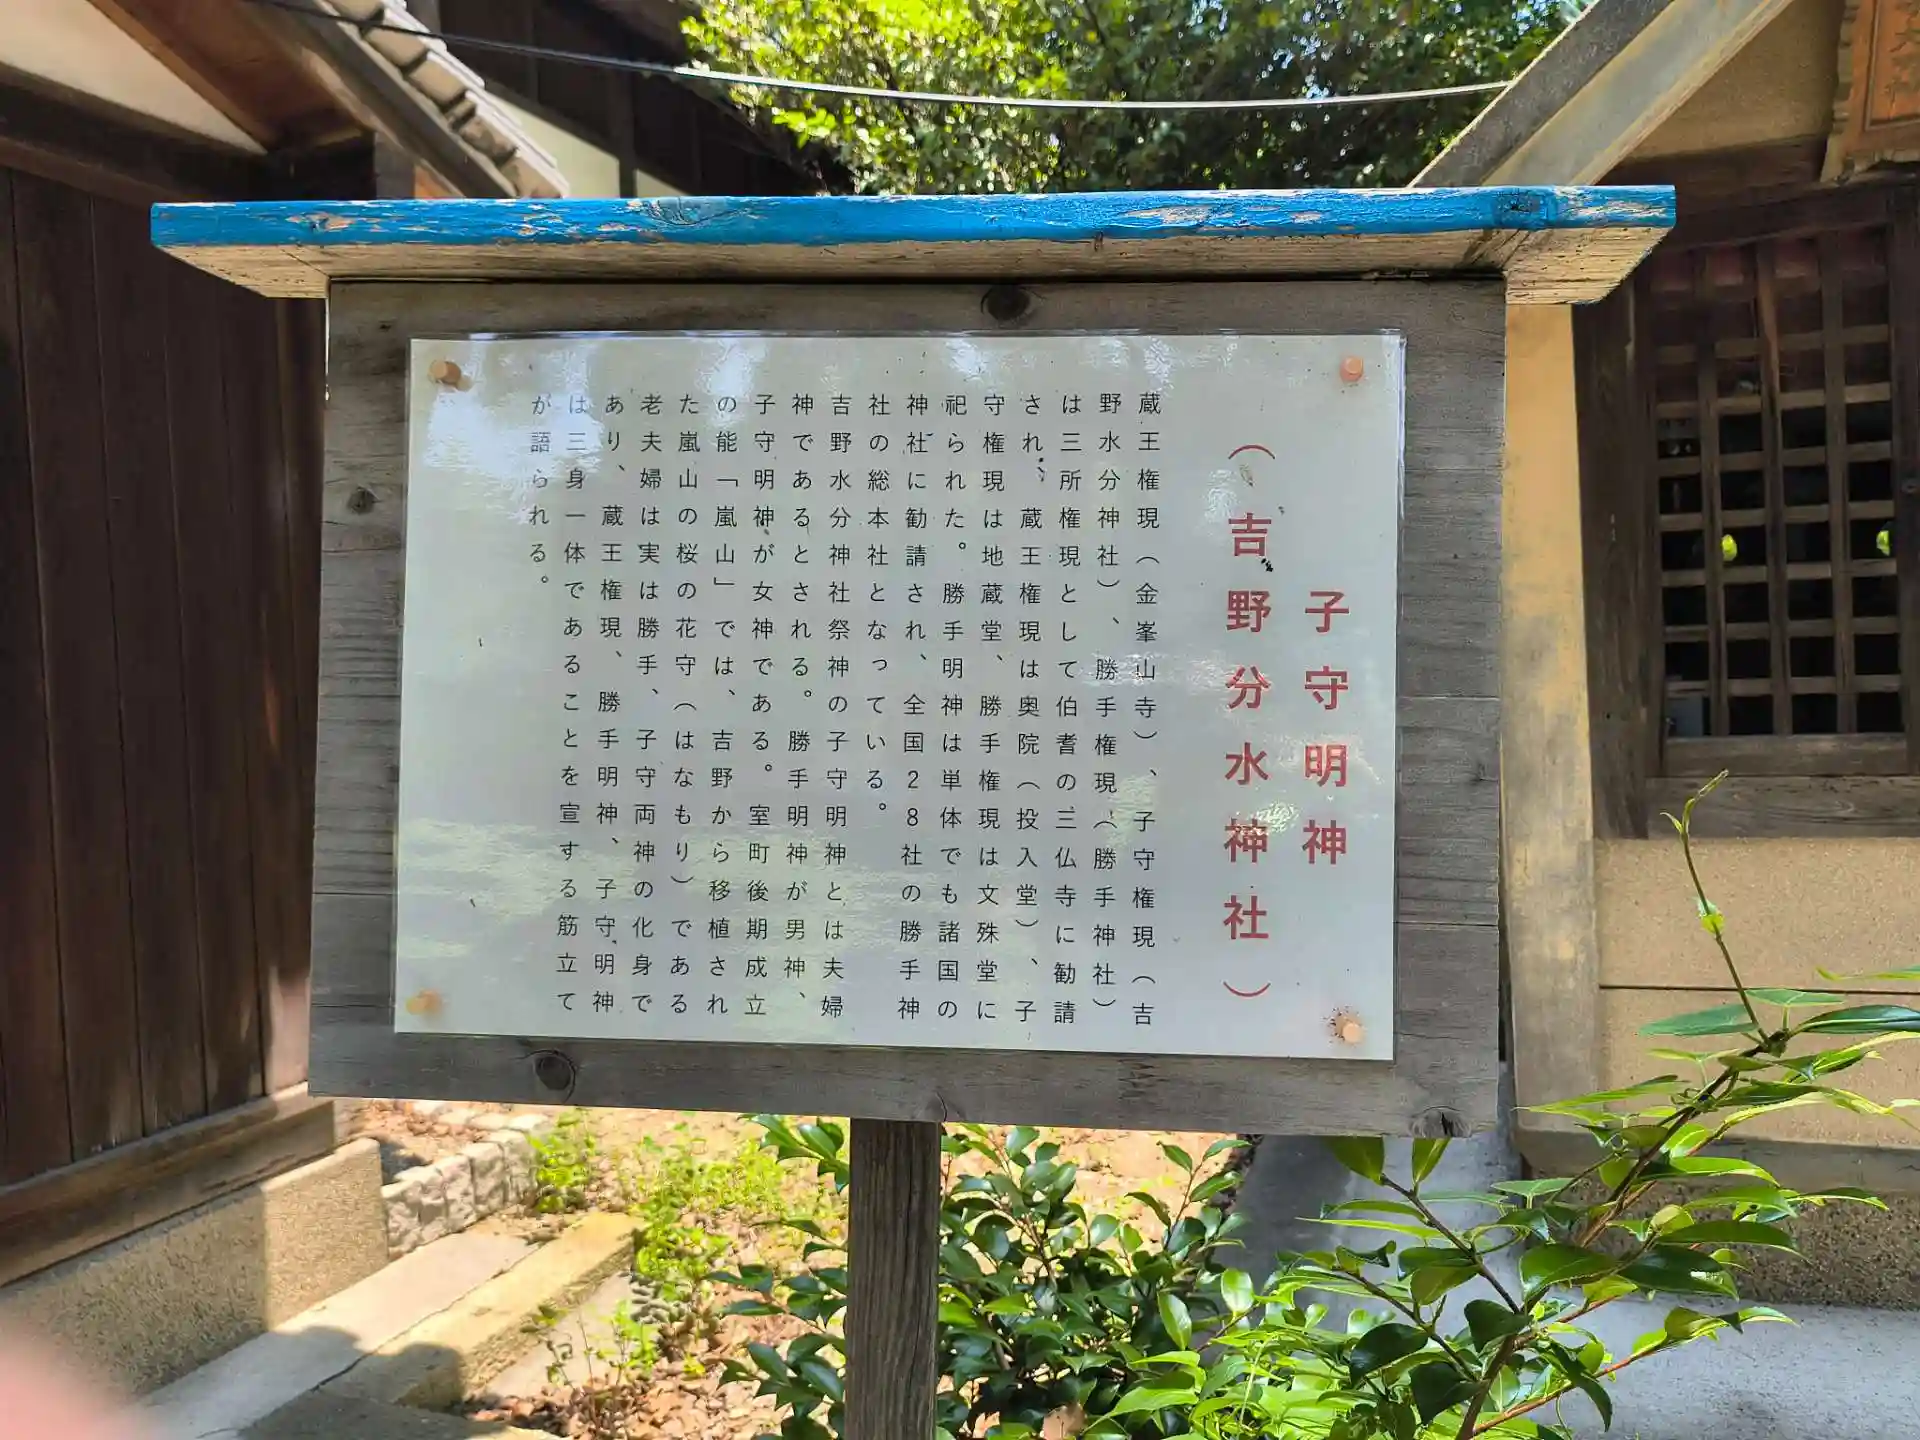 子守明神
（吉野分水神社）
蔵王権現（金峯山寺）、子守権現（吉
野水分神社）、勝手権現（勝手神社）
は三所権現として伯耆の三仏寺に勧請
され、蔵王権現は奥院（投入堂）、子
守権現は地蔵堂、勝手権現は文殊堂に
祀られた。勝手明神は単体でも諸国の
神社に勧請され、全国２８社の勝手神
社の総本社となっている。
吉野水分神社祭神の子守明神とは夫婦
神であるとされる。勝手明神が男神、
子守明神が女神である。室町後期成立
の能「嵐山」では、吉野から移植され
た嵐山の桜の花守（はなもり）である
老夫婦は実は勝手、子守両神の化身で
あり、蔵王権現、勝手明神、子守明神
は三身一体であることを宣する筋立て
が語られる。